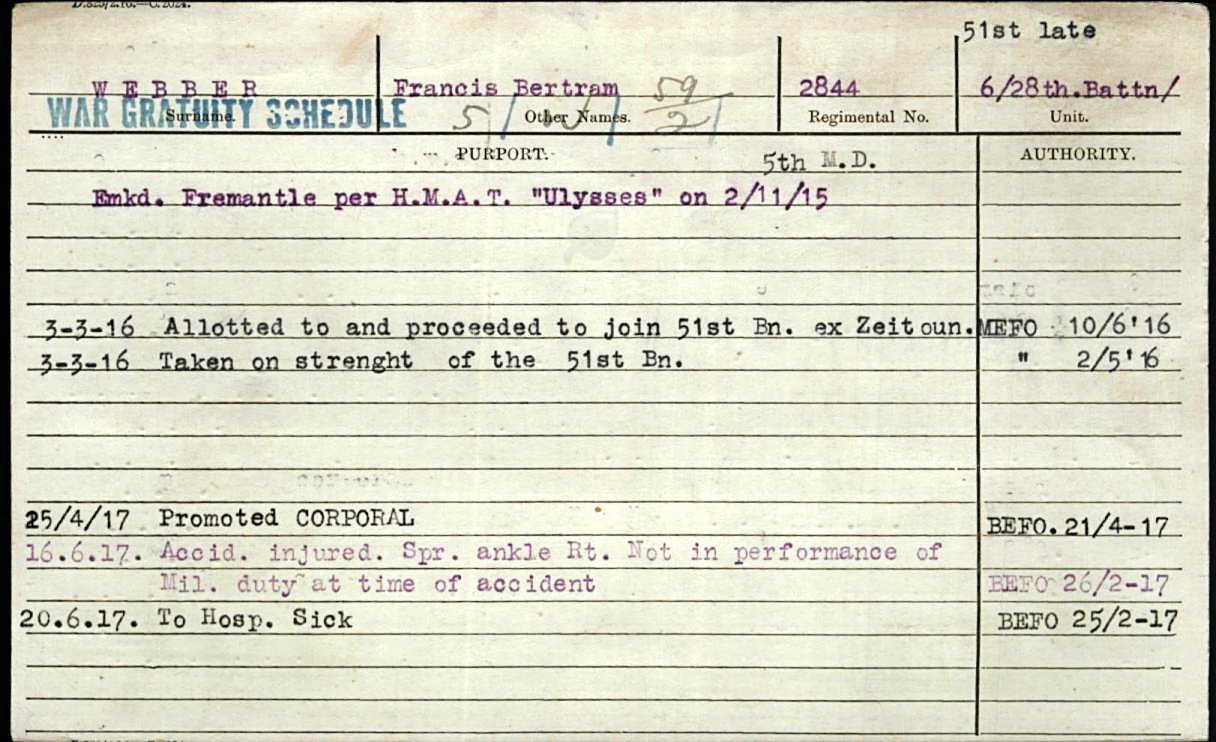 51st late
WEBBER Francis Bertram 59/2 2844 6/28th.Battn/
WAR GRATUITY SCHEDULE
Surname. 5 Other Names. Regimental No. Unit.
PURPORT. 5th M.D. AUTHORITY.
Emkd. Fremantle per H.M.A.T. "Ulysses" on 2/11/15
3-3-16 Allotted to and proceeded to join 51st Bn. ex Zeitoun. MEFO 10/6'16
3-3-16 Taken on strenght of the 51st Bn. " 2/5'16
25/4/17 Promoted CORPORAL BEFO. 21/4-17
16.6.17. Accid. injured. Spr. ankle Rt. Not in performance of
Mil. duty at time of accident BEFO 26/2-17
20.6.17. To Hosp. Sick BEFO 25/2-17